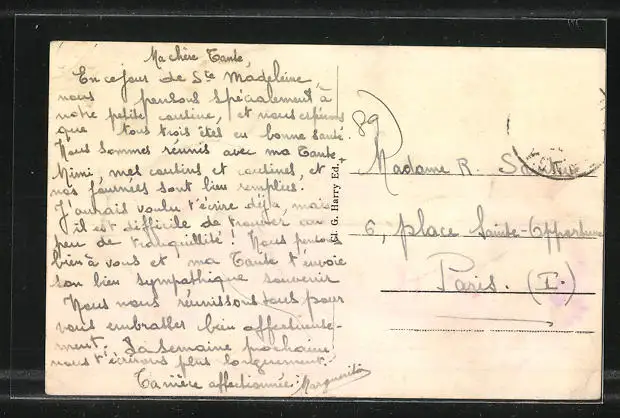 Ma chère Tante,
En ce jour de Ste Madeleine,
nous pensons spécialement à
notre petite cousine, et nous espérons
que vous trois êtes en bonne santé.
Nous sommes réunis avec ma Tante
Mimi, mes cousins et cousines, et
nos journées sont bien remplies.
J'aurais voulu t'écrire déjà, mais
il est difficile de trouver un
peu de tranquillité ! Nous pensons
bien à vous et ma Tante t'envoie
son bien sympathique souvenir
Nous nous réunissons tous pour
vous embrasser bien affectueuse-
ment. La semaine prochaine
nous t'écrirons plus longuement.
Ta nièce affectionnée. Marguerite
Cl. G. Harry Ed.
89
Madame R.
6, place Sainte-Opportune
Paris. (I.)